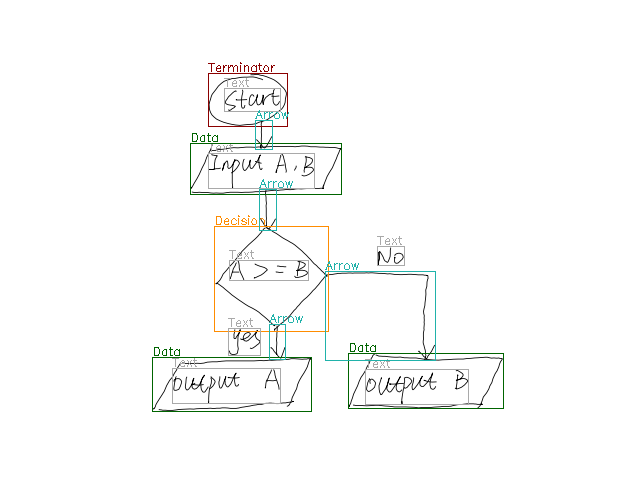 Terminator
Text
Start
Arrow
Data
Text
Input A, B
Arrow
Decision
Text
A >= B
Text
No
Arrow
Text
yes
Arrow
Data
Text
output A
Data
Text
output B